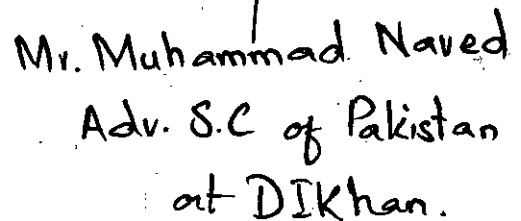 Mr. Muhammad Naved
Adv. S.C of Pakistan
at DIKhan.